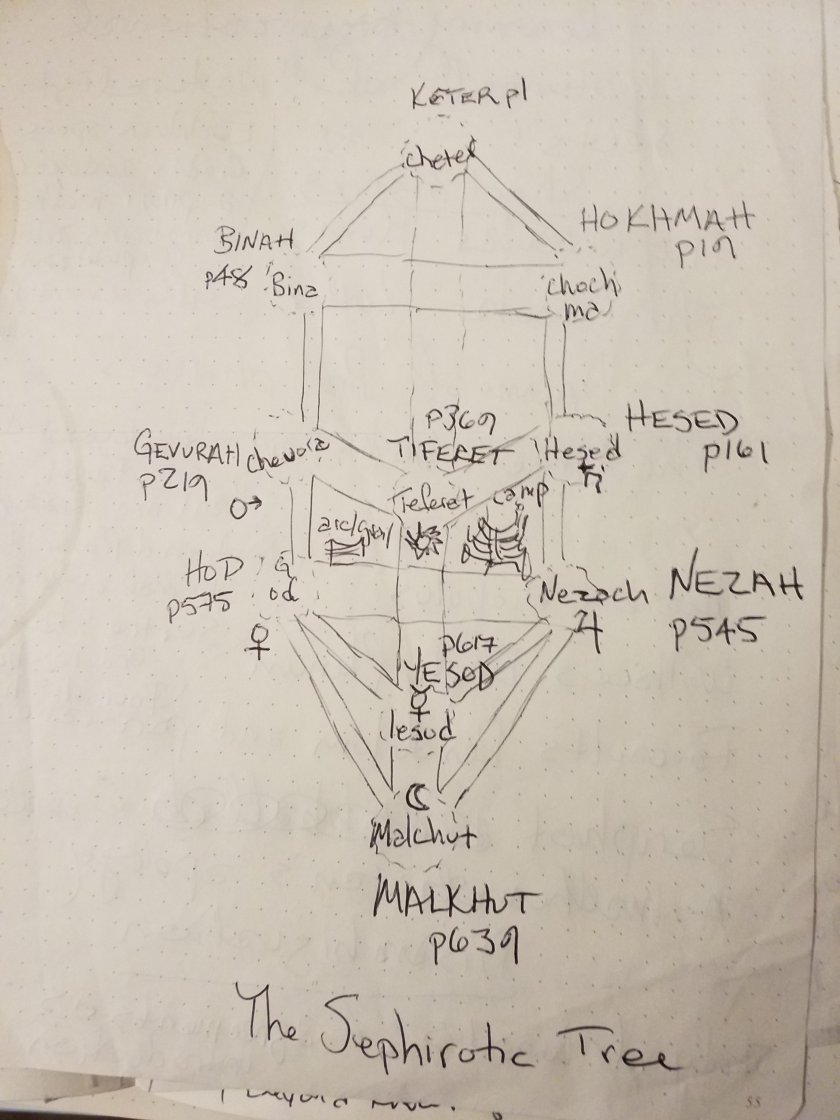 KETER p1
cheter
HOKHMAH
p19
BINAH
p48
Bina
choch
ma
p369
TIFERET
HESED
p161
Hesed
GEVURAH
p219
Tieferet
camp
HOD
p575
od
Nezach
NEZAH
p545
p617
YESOD
Iesod
Malchut
MALKHUT
p639
The Sephirotic Tree
55